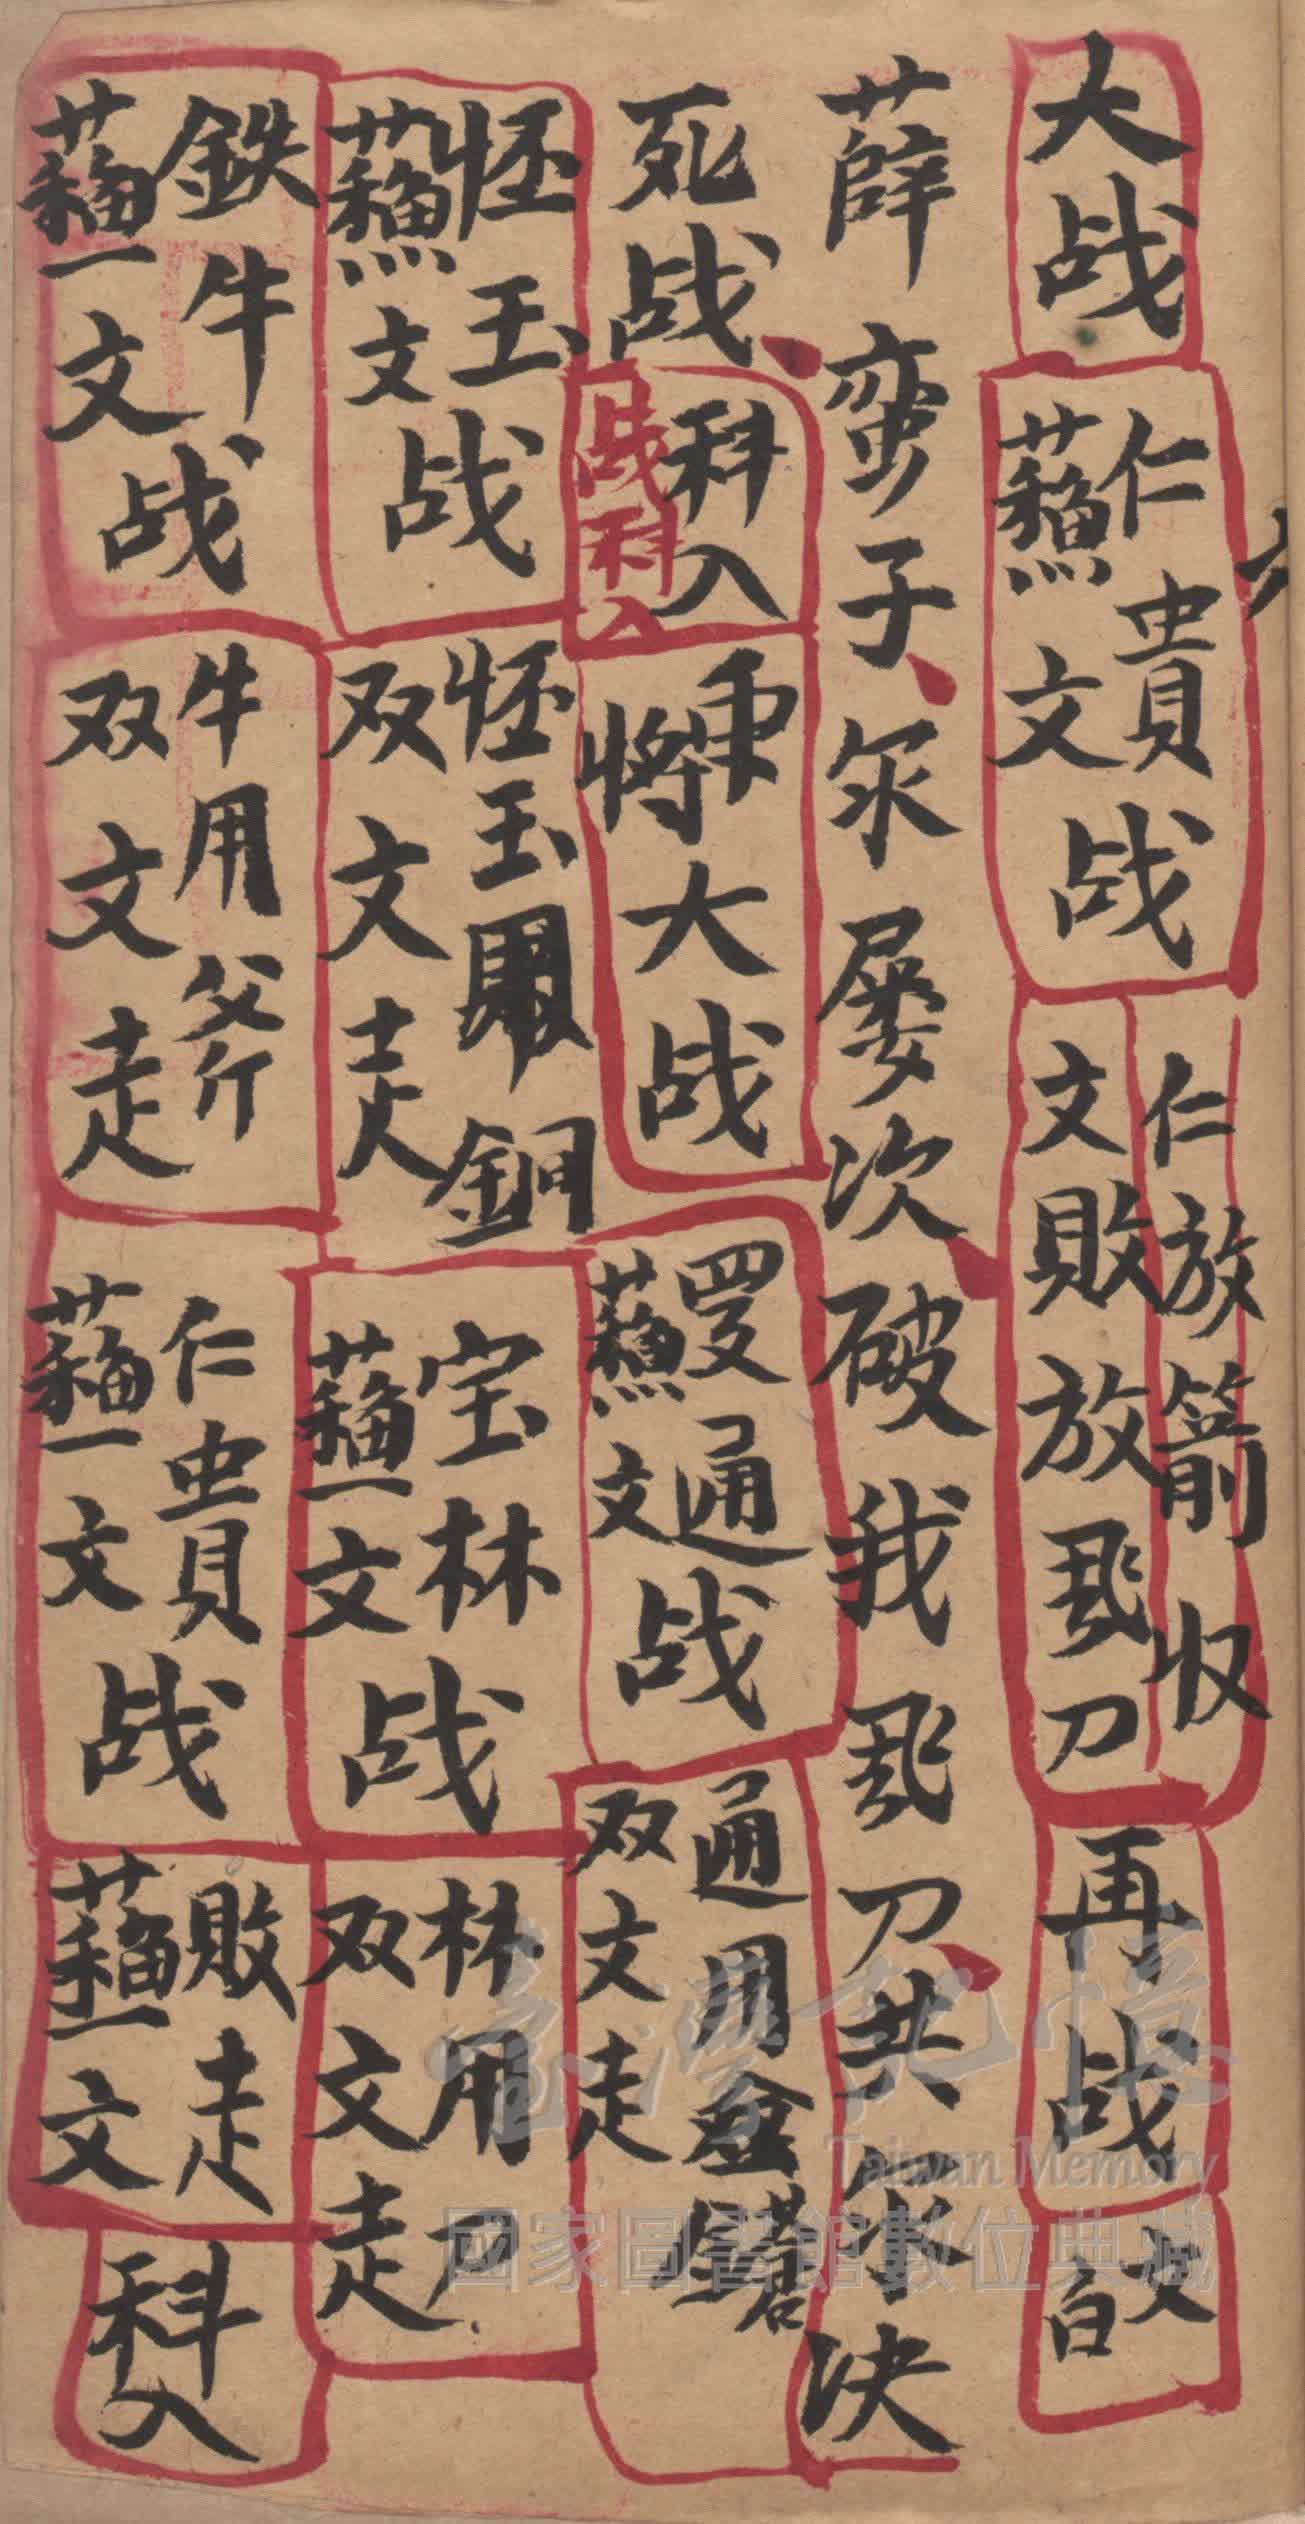 大战
仁貴
蘇文
战
仁放箭收
文敗放飛刀
再战
文白
薛蛮子、你屡次、破我飛刀、共你决
死战、
科入
战科入
兵将大战
罗通
蘇文
战
通用金
双文走
怪玉
蘇文
战
怪玉用鐧
双文走
宝林
蘇文
战
林用
双文走
鉄牛
蘇文
战
牛用斧
双文走
仁貴
蘇文
战
敗走
蘇文
科入
臺灣記憶
Taiwan Memory
國家圖書館數位典藏